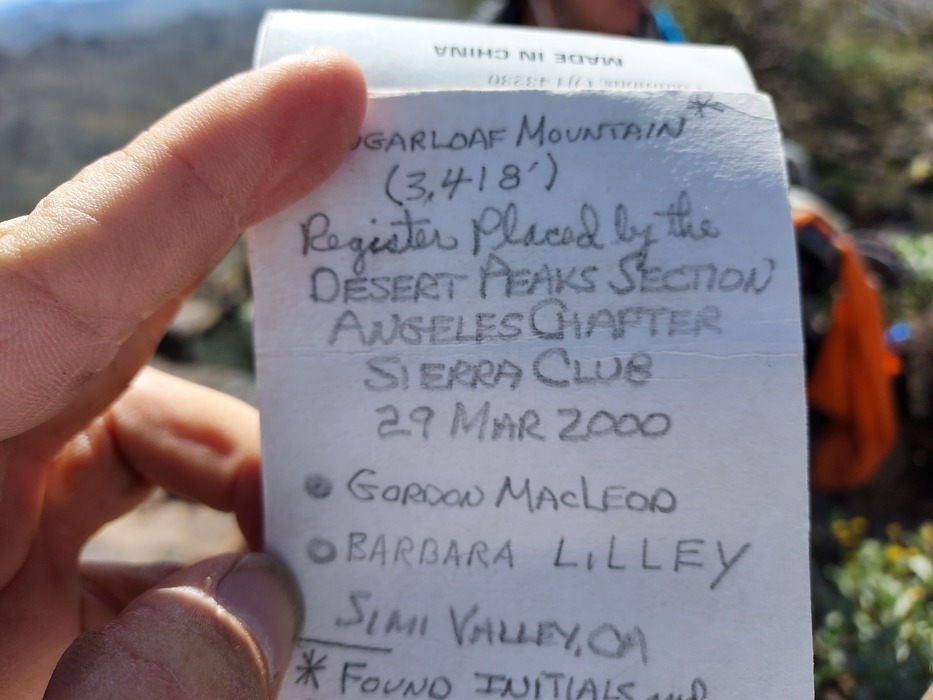 MADE IN CHINA
43230
UGARLOAF MOUNTAIN*
(3,418')
Register Placed by the
DESERT PEAKS SECTION
ANGELES CHAPTER
SIERRA CLUB
29 MAR 2000
GORDON MACLEOD
BARBARA LILLEY
SIMI VALLEY, CA
* FOUND INITIALS and